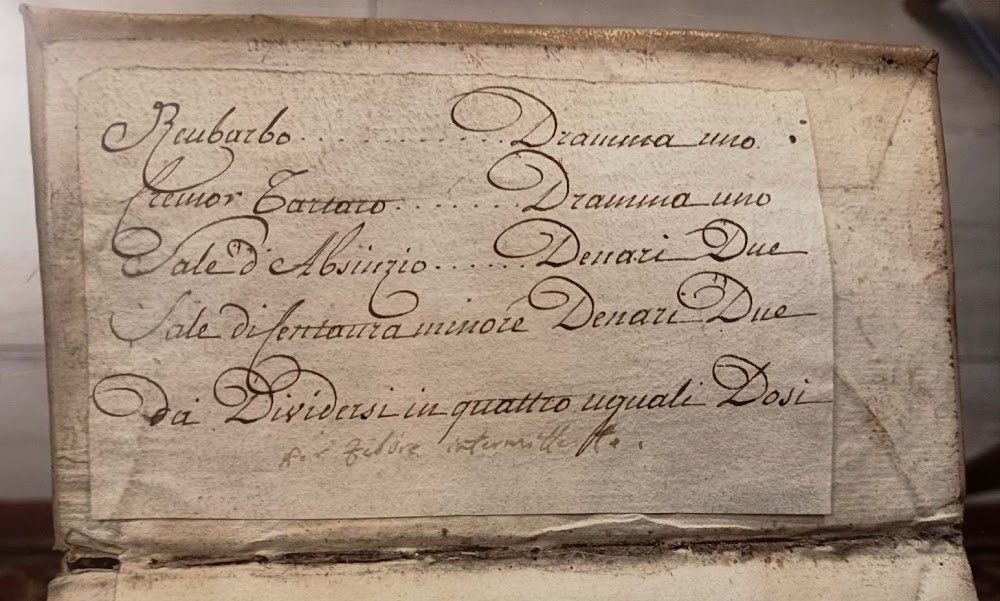 Reubarbo . . . . . . . . . . . . . . Dramma uno.
Cremor Tartaro . . . . . . . . Dramma uno
Sale d'Absinzio . . . . . . Denari Due
Sale di Centaura minore Denari Due
da Dividersi in quattro uguali Dosi
per febbre intermittente.